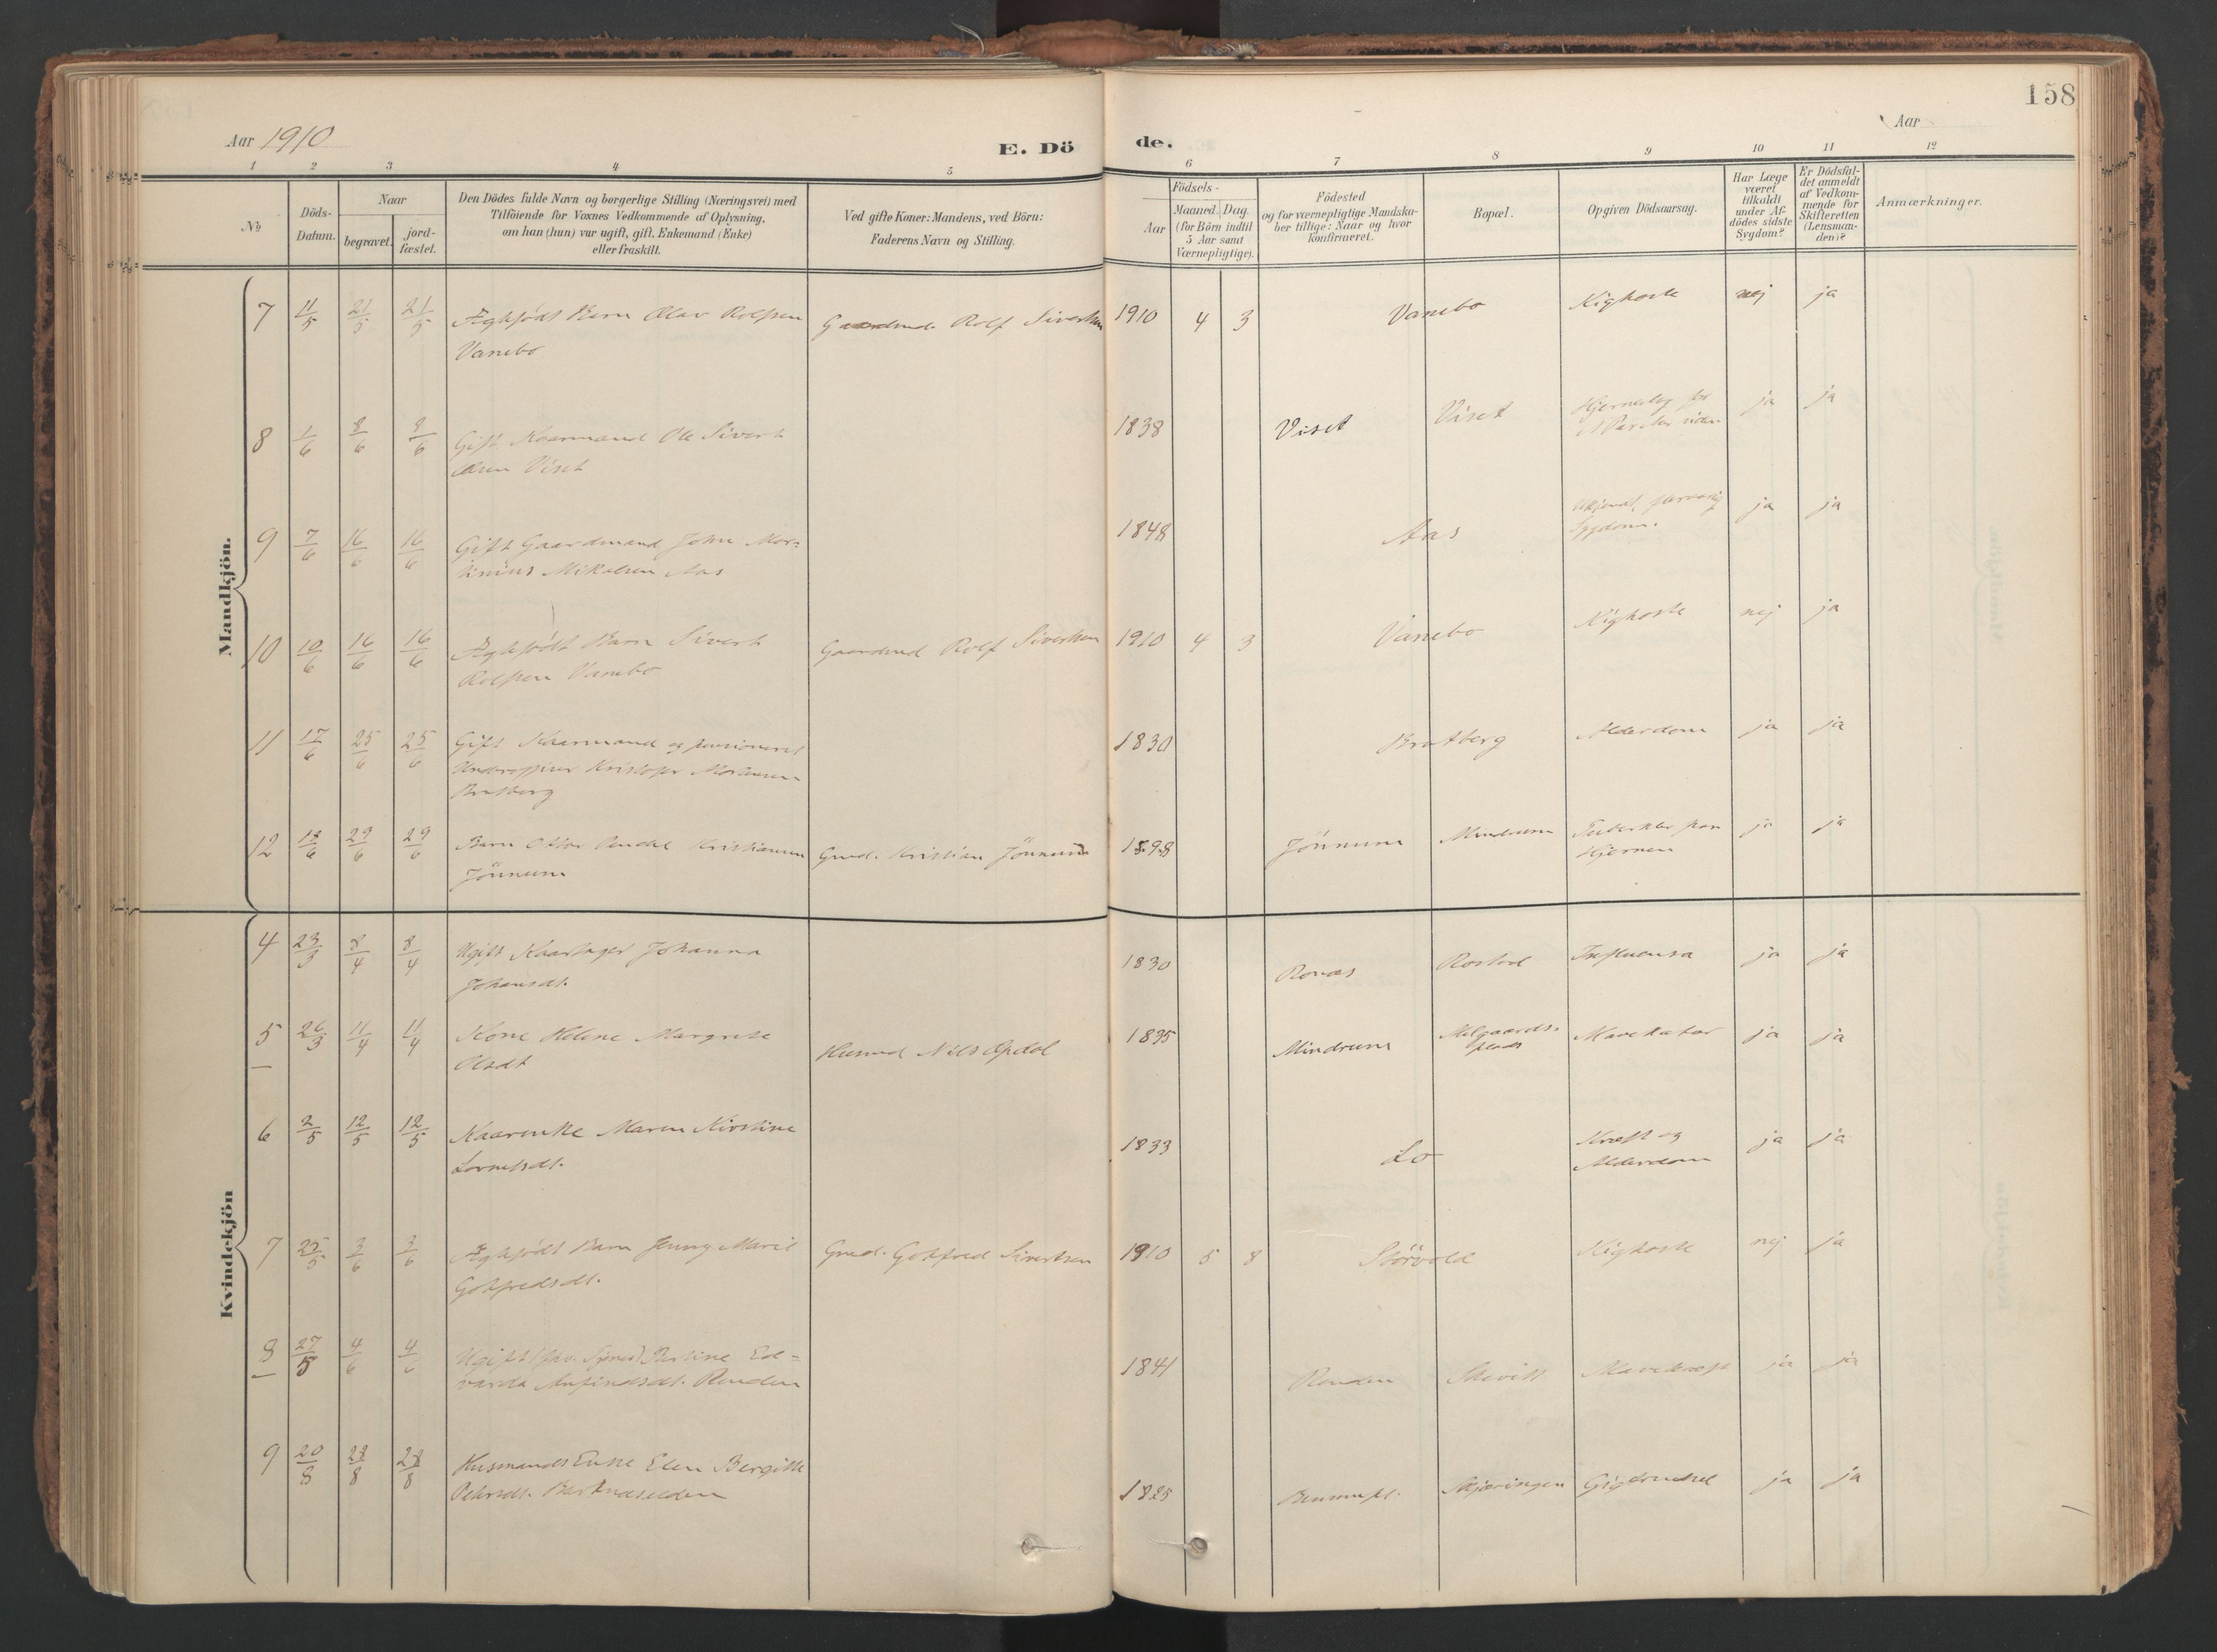 158
Aar 1910
E. Döde.
Aar
1 2 3 4 5 6 7 8 9 10 11 12
No
Döds-
Datum.
Naar
begravet.
jord-
fæstet.
Den Dödes fulde Navn og borgerlige Stilling (Næringsvei) med
Tilföiende for Voxnes Vedkommende af Oplysning,
om han (hun) var ugift, gift, Enkemand (Enke)
eller fraskilt.
Ved gifte Koner: Mandens, ved Börn:
Faderens Navn og Stilling.
Födsels-
Aar
Maaned. Dag.
(for Börn indtil
5 Aar samt
Værnepligtige).
Födested
og for værnepligtige Mandska-
ber tillige: Naar og hvor
konfirmeret.
Bopæl.
Opgiven Dödsaarsag.
Har Læge
været
tilkaldt
under Af-
dödes sidste
Sygdom?
Er Dödsfal-
det anmeldt
af Vedkom-
mende for
Skifteretten
(Lensman-
den)?
Anmærkninger.
Mandkjön.
7 11/5 21/5 21/5 Ægtefødt Barn Olav Rolfsen Gaardmd. Rolf Sivertsen 1910 4 3 Vanebo Kighoste nej ja
Vanebo
8 1/6 8/6 8/6 Gift Kaarmand Ole Sivert 1838 Viset Viset ja ja
Viset
9 7/6 16/6 16/6 Gift Gaardmand John Mor- 1848 Aas Sygdom. ja ja
Mikalsen Aas
10 10/6 16/6 16/6 Ægtefødt Barn Sivert Gaardmd Rolf Sivertsen 1910 4 3 Vanebo Kighoste nej ja
Rolfsen Vanebo
11 17/6 25/6 25/6 Gift Kaarmand og pensioneret 1830 Bratberg Alderdom ja ja
Underofficer Kristofer
Bratberg
12 18/6 29/6 29/6 Barn Kristiansen Gmd. Kristian Jönnum 1898 Jönnum Mindrum Tuberkler paa ja ja
Jönnum Hjernen
Kvindekjön
4 23/3 8/4 8/4 Ugift Johanna 1830 Rovas Rostad Influensa ja ja
Johansdt.
5 26/3 11/4 11/4 Kone Helene Margrete Husmd Nils Opdal 1835 Mindrum Melgaards- Mavekatar ja ja
Olsdt plads
6 2/5 12/5 12/5 Kaarenke Maren Kirstine 1833 Lo Kræft og ja ja
Lorntsdt. Alderdom
7 25/5 3/6 3/6 Ægtefødt Barn Jenny Marie Gmd. Gotfred Sivertsen 1910 5 8 Störvold Kighoste nej ja
Gotfredsdt.
8 27/5 4/6 4/6 Ugift Ed- 1841 Renden Mavekræft ja ja
varda Anfindsdt. Renden
9 20/8 28/8 28/8 Husmands Enke Elen Bergitte 1825 Skjæringen Gigtbrudden ja ja
Petersdt.